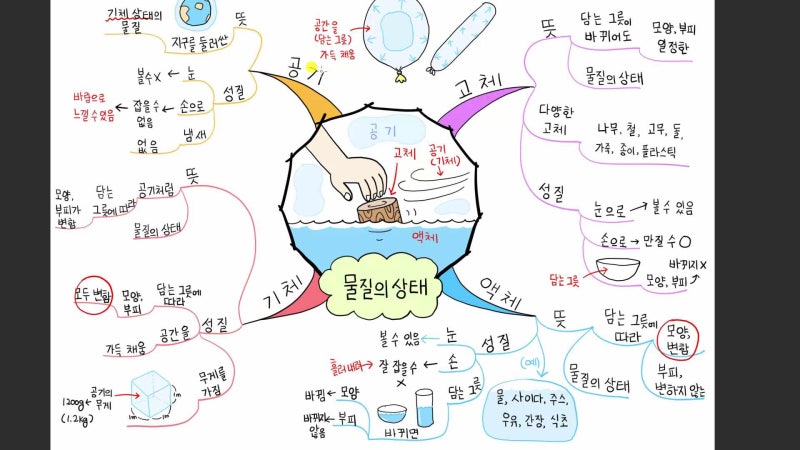 기체 상태의
물질
지구를 둘러싼
뜻
공기
볼수X ← 눈
바람으로
느낄 수 있음
잡을 수
없음
손으로
성질
없음
냄새
공간을
(담는 그릇)
가득 채움
고체
뜻
담는 그릇이
바뀌어도
모양, 부피
일정한
물질의 상태
다양한
고체
나무, 철, 고무, 돌,
가죽, 종이, 플라스틱
성질
눈으로 → 볼 수 있음
손으로 → 만질 수 O
담는 그릇
바뀌지 X
모양, 부피
공기
고체
공기
(기체)
액체
물질의 상태
기체
뜻
공기처럼
담는
그릇에 따라
모양,
부피가
변함
물질의 상태
성질
담는 그릇에
따라
모양,
부피
모두 변함
공간을
가득 채움
무게를
가짐
공기의
무게
1200g
(1.2kg)
1m
1m
1m
액체
뜻
담는 그릇에
따라
모양,
변함
부피,
변하지 않는
물질의 상태
(예)
물, 사이다, 주스,
우유, 간장, 식초
성질
눈
볼 수 있음
손
잘 잡을 수
X
흘러내려
담는 그릇
바뀌면
바뀜 ← 모양
바뀌지
않음
부피